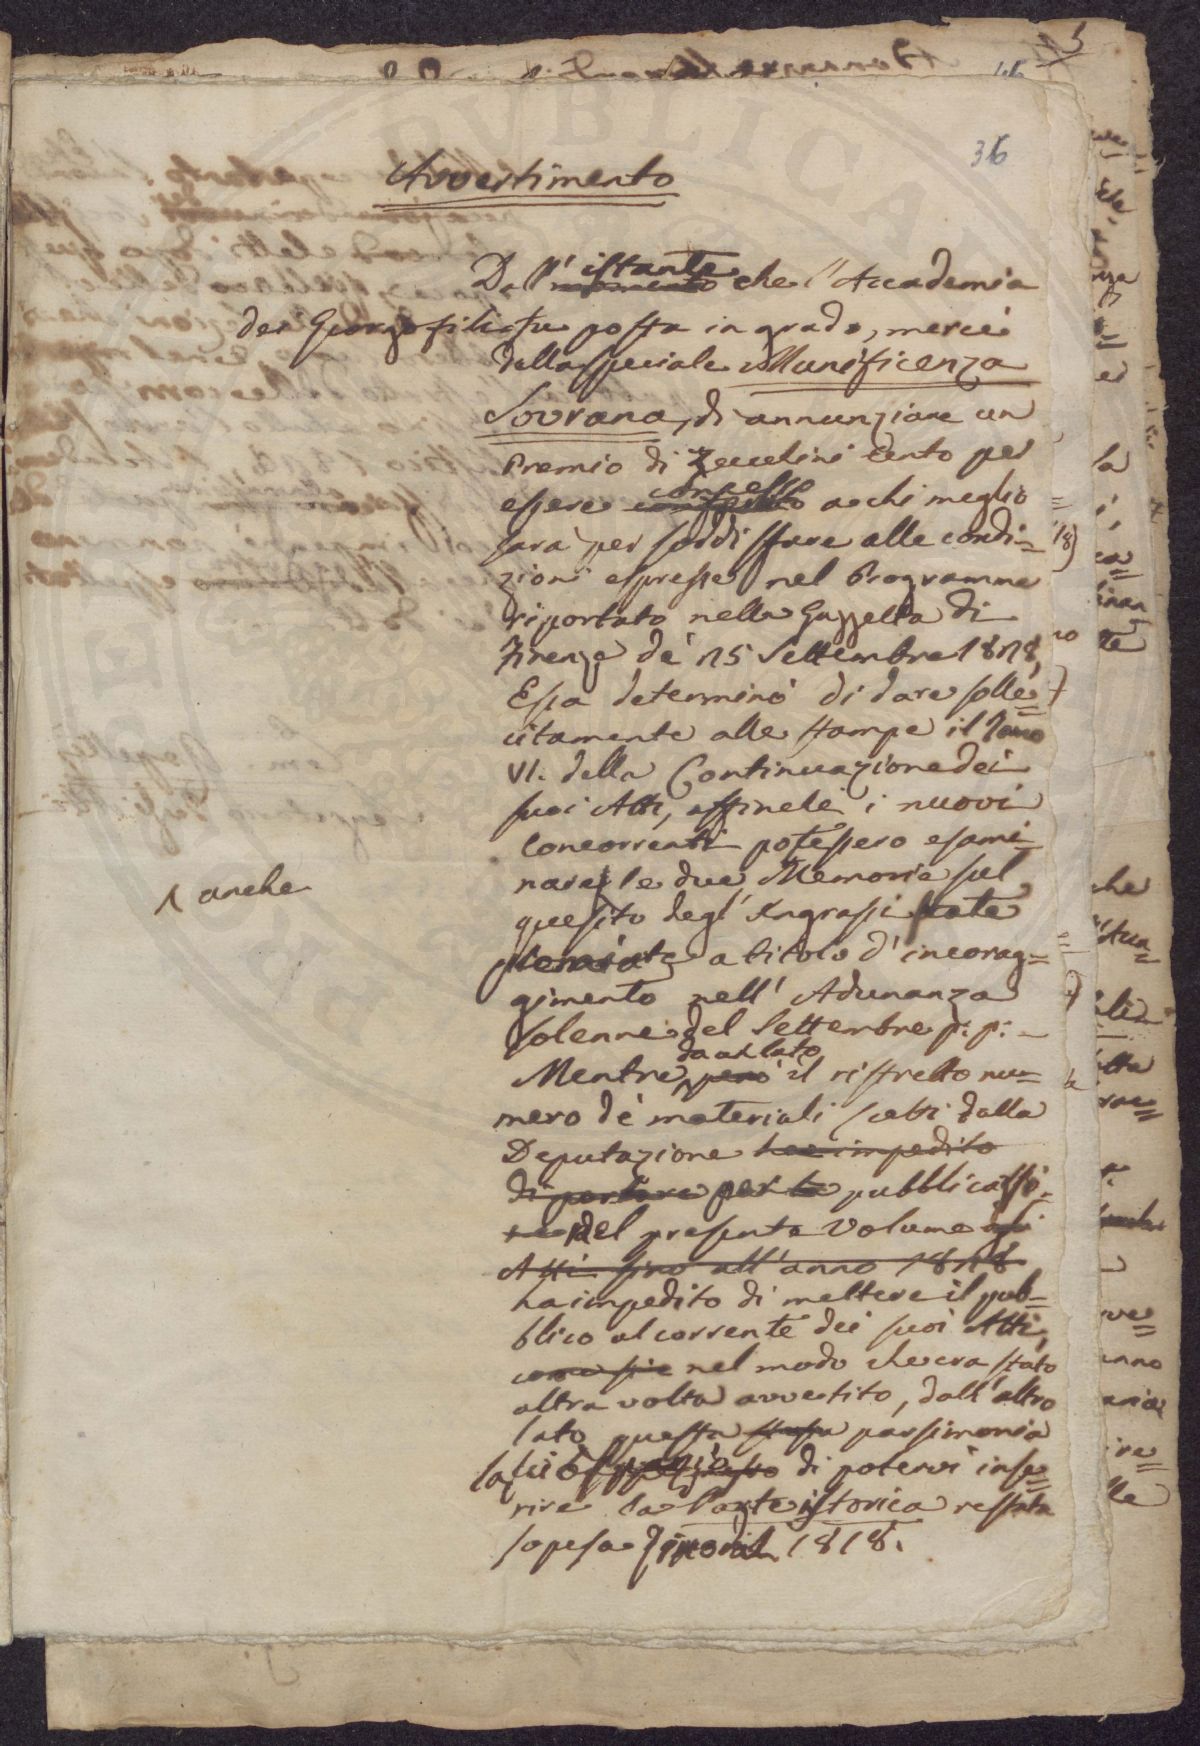 36
Avvertimento
istante
Dall' momento che l'Accademia
dei Georgofili fu posta in grado, mercè
della speciale Munificenza
Sovrana, di annunziare un
Premio di Zecchini Cento per
concesso
essere a chi meglio
sarà per soddisfare alle condi=
zioni espresse nel Programma
riportato nella Gazzetta di
Firenze de' 15 Settembre 1818,
Essa determinò di dare solle=
citamente alle stampe il Tomo
VI. della Continuazione dei
suoi Atti, affinchè i nuovi
Concorrenti potessero esami=
nare le due Memorie sul
anche
quesito degl'Ingrassi state
premiate a titolo d'incorag=
gimento nell'Adunanza
Solenne del Settembre p: p: —
da un lato
Mentre però il ristretto nu=
mero de' materiali scelti dalla
Deputazione ha impedito
di portare per la pubblicazio=
ne del presente Volume gli
Atti fino all'anno 1818
ha impedito di mettere il pub=
blico al corrente dei suoi Atti,
nel modo che era stato
altra volta avvertito, dall'altro
lato questa stessa parsimonia
di potervi inse=
rire la Parte istorica restata
sospesa 1818.